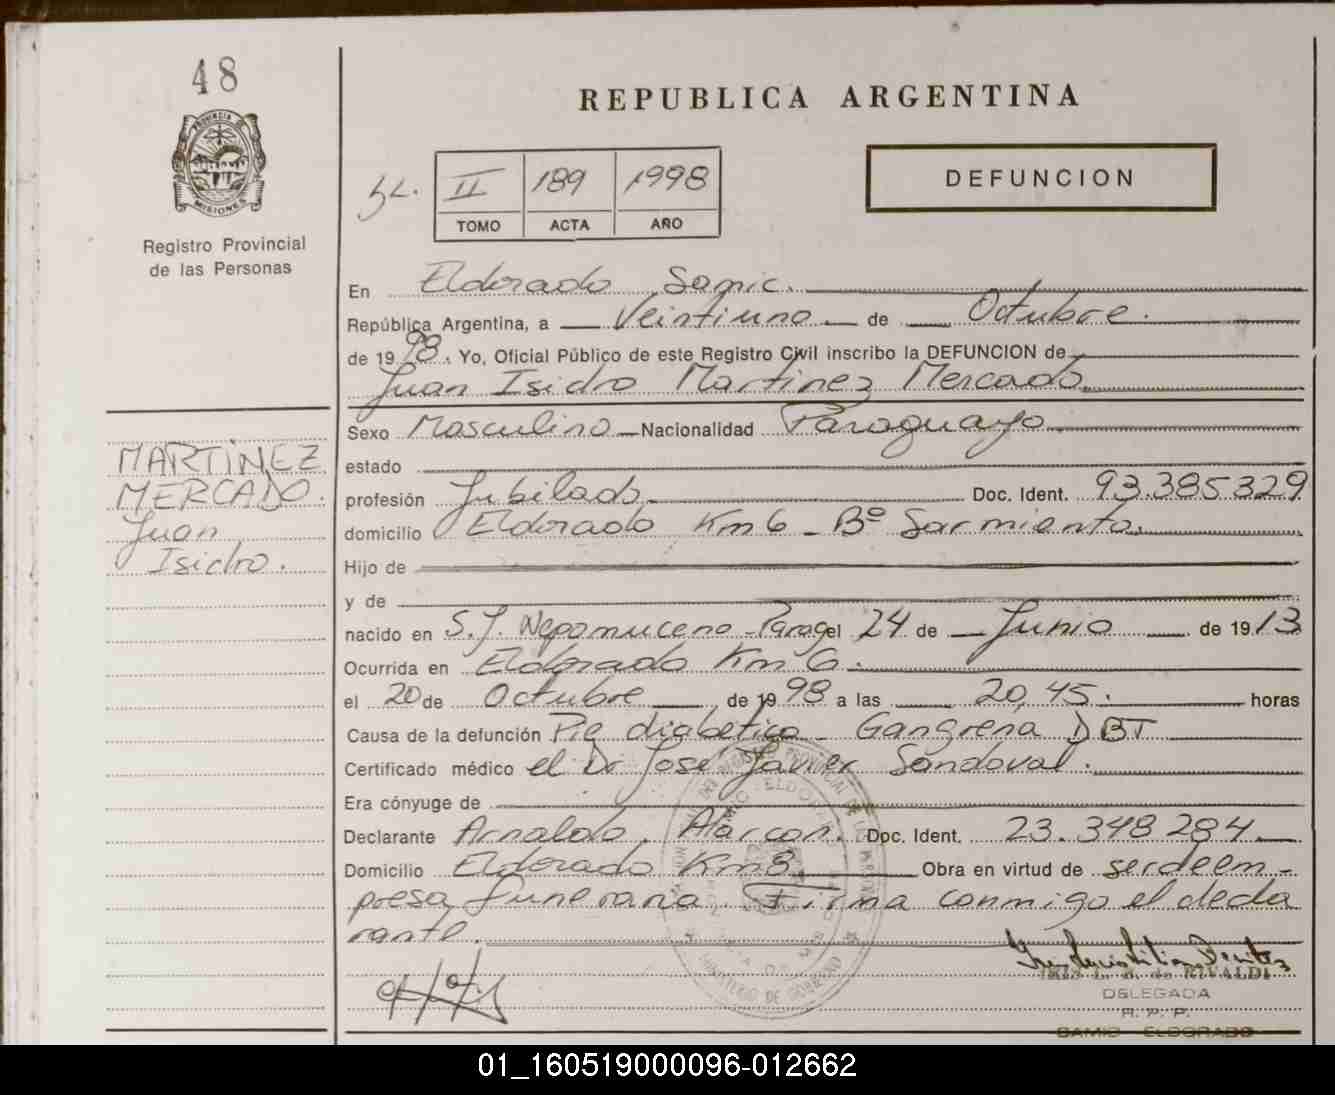 48
PROVINCIA DE
MISIONES
Registro Provincial
de las Personas
REPUBLICA ARGENTINA
II 189 1998
TOMO ACTA AÑO
DEFUNCION
En Eldorado Samic.
República Argentina, a Veintiuno de Octubre.
de 1998. Yo, Oficial Público de este Registro Civil inscribo la DEFUNCION de
Juan Isidro Martinez Mercado
Sexo Masculino Nacionalidad Paraguayo
estado
profesión Jubilado Doc. Ident. 93.385329
domicilio Eldorado Km 6 - Bº Sarmiento.
Hijo de
y de
nacido en S.J. Nepomuceno - Parag el 24 de Junio de 1913
Ocurrida en Eldorado Km 6.
el 20 de Octubre de 1998 a las 20,45. horas
Causa de la defunción Pie diabetico - Gangrena DBT
Certificado médico el Dr José Javier Sandoval.
Era cónyuge de
Declarante Arnaldo Alarcon. Doc. Ident. 23.348284.
Domicilio Eldorado Km 8. Obra en virtud de ser de em-
presa funeraria. Firma conmigo el decla
rante.
MARTINEZ
MERCADO.
Juan
Isidro.
IRIS L. B. de RIVALDI
DELEGADA
R. P. P.
SAMIC - ELDORADO
MINISTERIO DE GOBIERNO
01_160519000096-012662